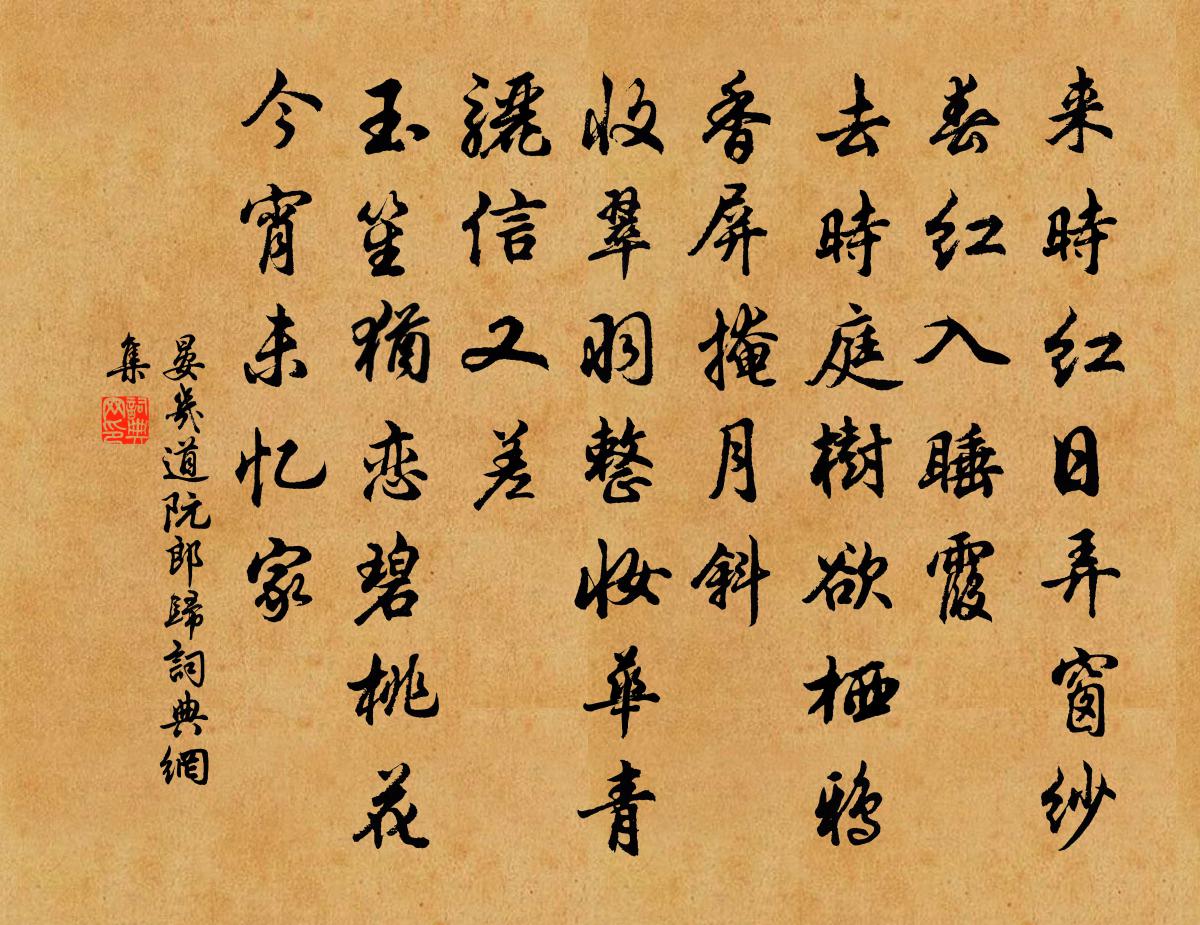 来時红日弄窗纱
春红入睡霞
去時庭樹欲栖鴉
香屏掩月斜
收翠羽整妆華青
驪信又差
玉笙猶恋碧桃花
今宵未忆家
晏幾道阮郎歸詞典網
集
詞典
网印